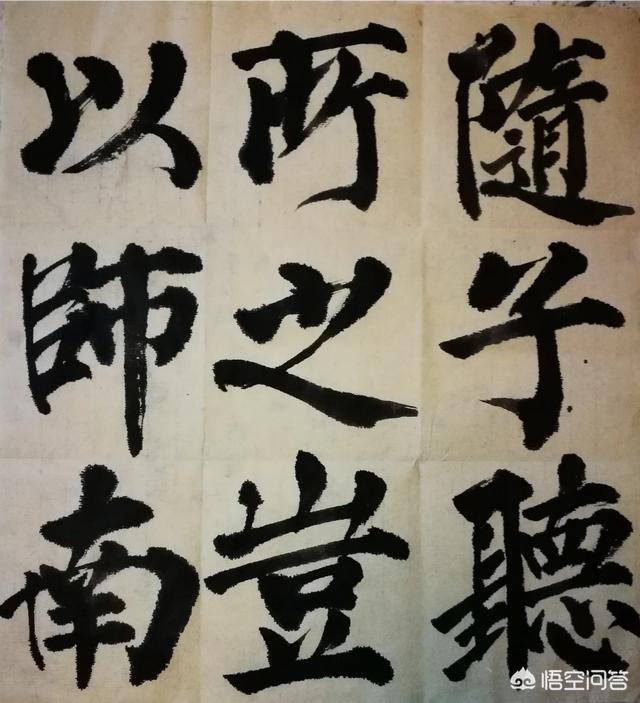 隨子聽
所之豈
以師南
悟空问答